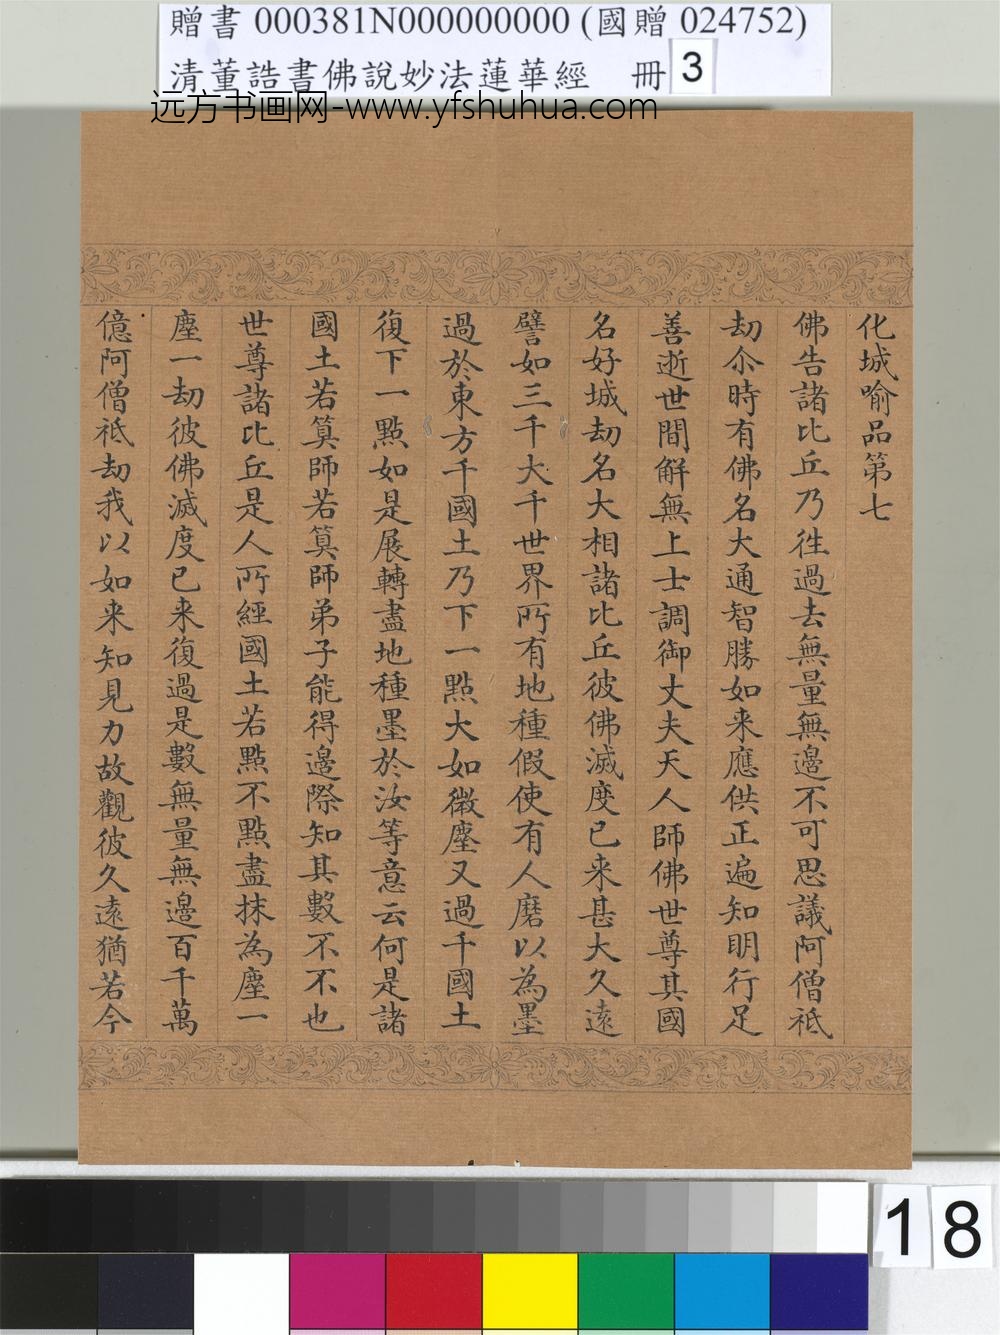 贈書 000381N000000000 (國贈 024752)
清董誥書佛說妙法蓮華經 冊 3
远方书画网-www.yfshuhua.com
化城喻品第七
佛告諸比丘乃徃過去無量無邊不可思議阿僧祇
劫尒時有佛名大通智勝如来應供正遍知明行足
善逝世間解無上士調御丈夫天人師佛世尊其國
名好城劫名大相諸比丘彼佛滅度已来甚大久遠
譬如三千大千世界所有地種假使有人磨以為墨
過於東方千國土乃下一點大如微塵又過千國土
復下一點如是展轉盡地種墨於汝等意云何是諸
國土若筭師若筭師弟子能得邊際知其數不不也
世尊諸比丘是人所經國土若點不點盡抹為塵一
塵一劫彼佛滅度已来復過是數無量無邊百千萬
億阿僧祇劫我以如来知見力故觀彼久遠猶若今
18